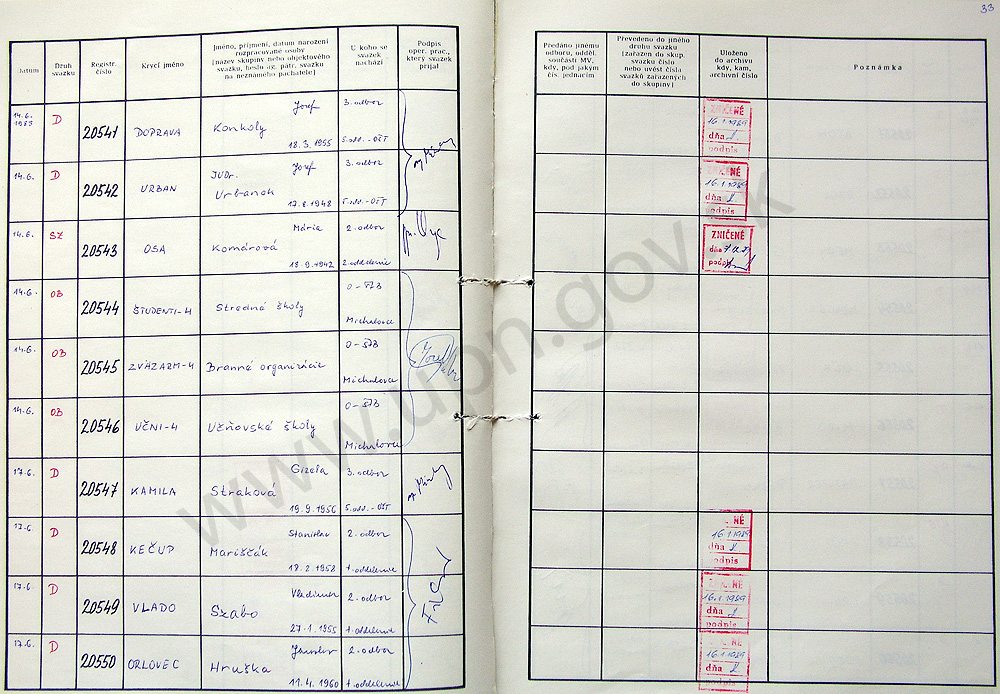 33
Datum
Druh svazku
Registr. číslo
Krycí jméno
Jméno, příjmení, datum narození rozpracované osoby (název skupiny nebo objektového svazku, heslo ag. pátr. svazku na neznámého pachatele)
U koho se svazek nachází
Podpis oper. prac., který svazek přijal
Předáno jinému odboru, odděl. součásti MV, kdy, pod jakým čís. jednacím
Převedeno do jiného druhu svazku (zařazen do skup. svazku číslo nebo uvést čísla svazků zařazených do skupiny)
Uloženo do archivu kdy, kam, archivní číslo
Poznámka
14.6. 1983 D 20541 DOPRAVA Jozef Konkoly 18.3.1955 3. odbor 5. odd. - OŠT
ZNIČENÉ 16.1.1989 dňa podpis
14.6. D 20542 URBAN JUDr. Jozef Urbanok 17.8.1948 3. odbor 5. odd. - OŠT
NÉ 16.1.1989 dňa podpis
14.6. SZ 20543 OSA Mária Komárová 18.9.1942 2. odbor 2. oddelenie
ZNIČENÉ dňa podpis
14.6. OB 20544 ŠTUDENTI-4 Stredné školy O-ŠTB Michalovce
14.6. OB 20545 ZVÄZARM-4 Branné organizácie O-ŠTB Michalovce
14.6. OB 20546 UČNI-4 Učňovské školy O-ŠTB Michalovce
17.6. D 20547 KAMILA Gizela Straková 19.9.1956 3. odbor 5. odd. - OŠT
17.6. D 20548 KEČUP Stanislav Mariščák 18.2.1958 2. odbor 1. oddelenie
NÉ 16.1.1989 dňa podpis
17.6. D 20549 VLADO Vladimír Szabo 27.1.1955 2. odbor 1. oddelenie
NÉ 16.1.1989 dňa podpis
17.6. D 20550 ORLOVEC Jaroslav Hruška 11.4.1960 2. odbor 1. oddelenie
NÉ 16.1.1989 dňa podpis
www.upn.gov.sk